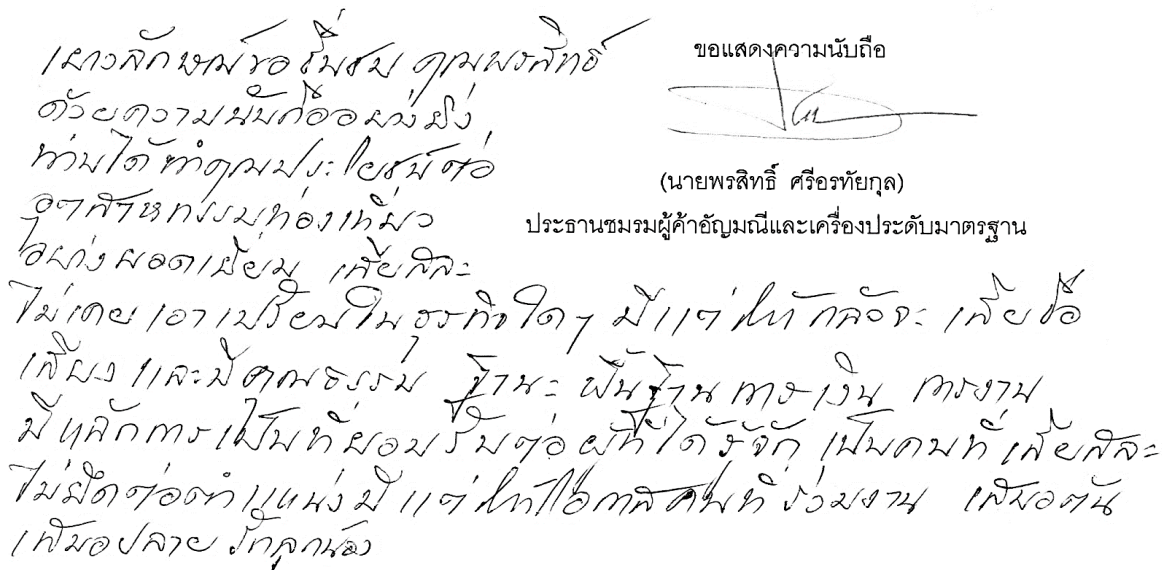 เยาวลักษณ์ขอชื่นชม คุณพรสิทธิ์
ด้วยความนับถืออย่างยิ่ง
ท่านได้ทำคุณประโยชน์ต่อ
อุตสาหกรรมท่องเที่ยว
อย่างยอดเยี่ยม เสียสละ
ไม่เคยเอาเปรียบในธุรกิจใดๆ มีแต่ให้ กลัวจะเสียชื่อ
เสียง และมีคุณธรรม ฐานะ พื้นฐาน การเงิน การงาน
มีหลักการเป็นที่ยอมรับต่อผู้ที่ได้รู้จัก เป็นคนที่เสียสละ
ไม่ยึดต่อตำแหน่งมีแต่ให้โอกาสคนที่ร่วมงาน เสมอต้น
เสมอปลาย รักลูกน้อง
ขอแสดงความนับถือ
(นายพรสิทธิ์ ศรีอรทัยกุล)
ประธานชมรมผู้ค้าอัญมณีและเครื่องประดับมาตรฐาน